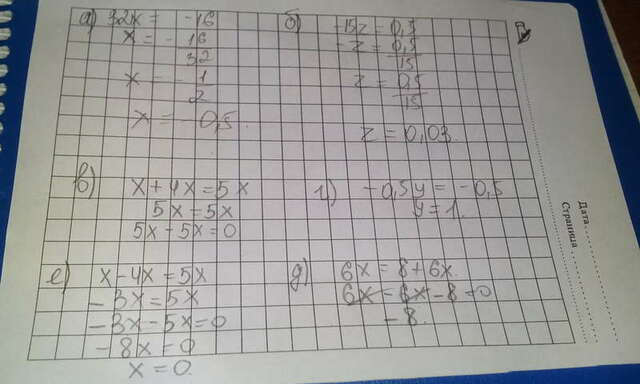 а) 32x = -16
x = - 16
32
x = - 1
2
x = - 0,5
б) -15z = 0,5
-z = 0,5
15
z = 0,5
-15
z = 0,03
в) x + 4x = 5x
5x = 5x
5x - 5x = 0
г) -0,5y = -0,5
y = 1.
е) x - 4x = 5x
- 3x = 5x
- 3x - 5x = 0
- 8x = 0
x = 0
д) 6x = 8 + 6x.
6x - 6x - 8 = 0
- 8.
Дата
Страница